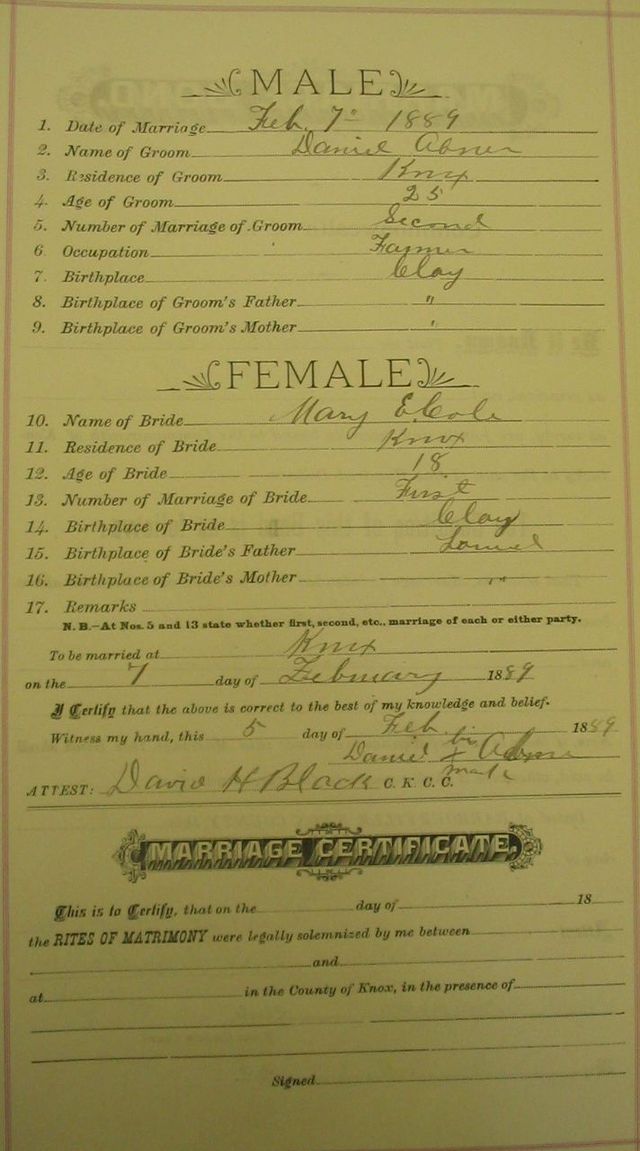 MALE
1. Date of Marriage Feb. 7" 1889
2. Name of Groom Daniel Abner
3. Residence of Groom Knox
4. Age of Groom 25
5. Number of Marriage of Groom Second
6. Occupation Farmer
7. Birthplace Clay
8. Birthplace of Groom's Father "
9. Birthplace of Groom's Mother "
FEMALE
10. Name of Bride Mary E Cole
11. Residence of Bride Knox
12. Age of Bride 18
13. Number of Marriage of Bride First
14. Birthplace of Bride Clay
15. Birthplace of Bride's Father Laurel
16. Birthplace of Bride's Mother "
17. Remarks
N. B.—At Nos. 5 and 13 state whether first, second, etc., marriage of each or either party.
To be married at Knox
on the 7 day of February 1889
I Certify that the above is correct to the best of my knowledge and belief.
Witness my hand, this 5 day of Feb 1889
Daniel his x mark Abner
ATTEST: David H Black C. K. C. C.
MARRIAGE CERTIFICATE.
This is to Certify, that on the day of 18
the RITES OF MATRIMONY were legally solemnized by me between
and
at in the County of Knox, in the presence of
Signed